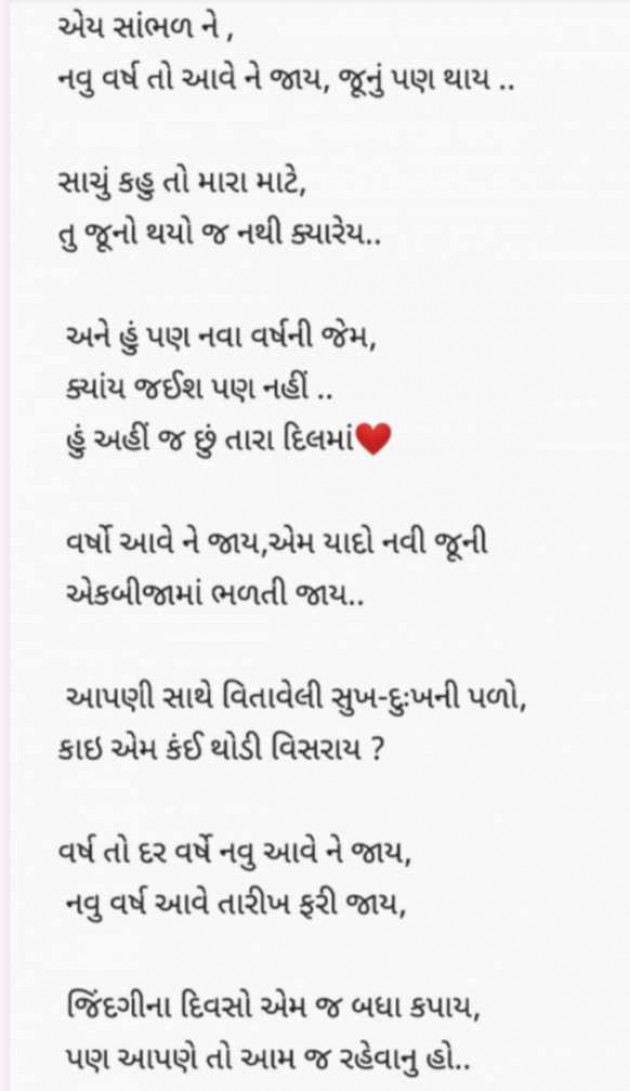 એય સાંભળ ને ,
નવુ વર્ષ તો આવે ને જાય, જૂનું પણ થાય ..
સાચું કહુ તો મારા માટે,
તુ જૂનો થયો જ નથી ક્યારેય..
અને હું પણ નવા વર્ષની જેમ,
ક્યાંય જઈશ પણ નહીં ..
હું અહીં જ છું તારા દિલમાં❤️
વર્ષો આવે ને જાય,એમ યાદો નવી જૂની
એકબીજામાં ભળતી જાય..
આપણી સાથે વિતાવેલી સુખ-દુઃખની પળો,
કાઇ એમ કંઈ થોડી વિસરાય ?
વર્ષ તો દર વર્ષે નવુ આવે ને જાય,
નવુ વર્ષ આવે તારીખ ફરી જાય,
જિંદગીના દિવસો એમ જ બધા કપાય,
પણ આપણે તો આમ જ રહેવાનુ હો..